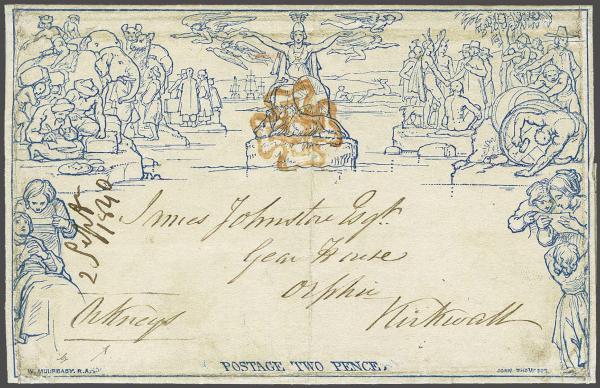 2 Septr
1840
James Johnston Esqr.
Gear House
Orphir
Orkneys
Kirkwall
W. MULREADY. R.A.
POSTAGE TWO PENCE.
JOHN THOMPSON